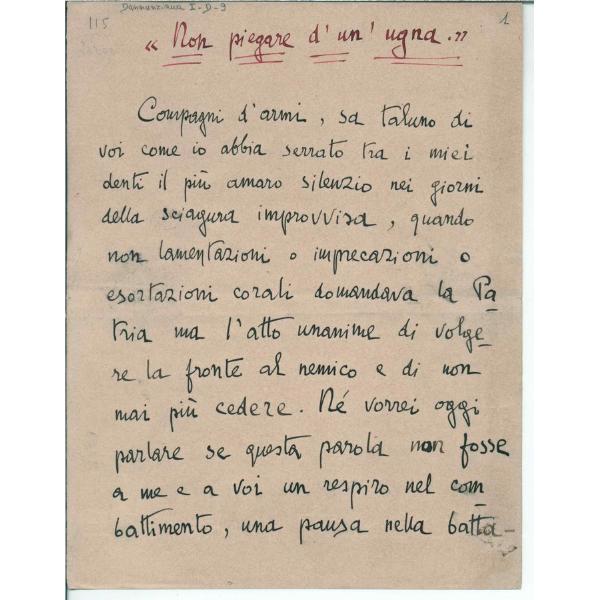 Dannunziana I-D-9
115
1
« Non piegare d'un' ugna. »
Compagni d'armi, sa taluno di
voi come io abbia serrato tra i miei
denti il più amaro silenzio nei giorni
della sciagura improvvisa, quando
non lamentazioni o imprecazioni o
esortazioni corali domandava la Pa-
tria ma l'atto unanime di volge-
re la fronte al nemico e di non
mai più cedere. Né vorrei oggi
parlare se questa parola non fosse
a me e a voi un respiro nel com-
battimento, una pausa nella batta-